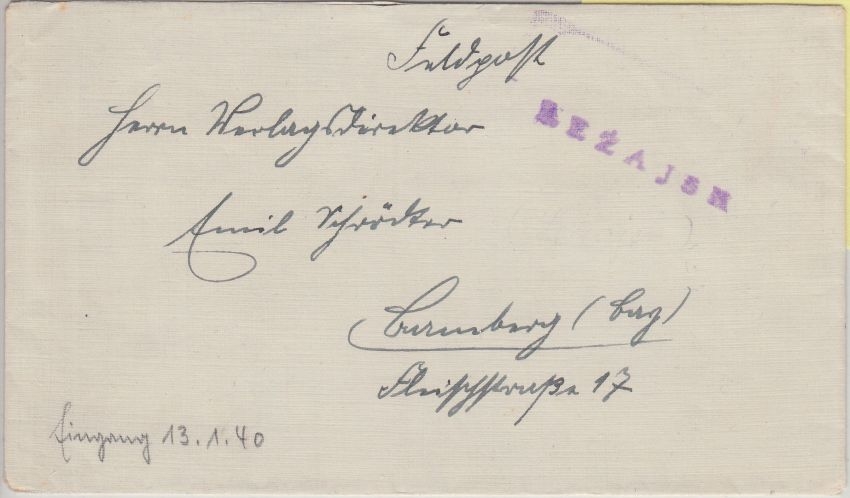 Feldpost
Herrn Verlagsdirektor
Emil Schrödter
Bamberg (Bay)
Fleischstraße 17
Eingang 13.1.40